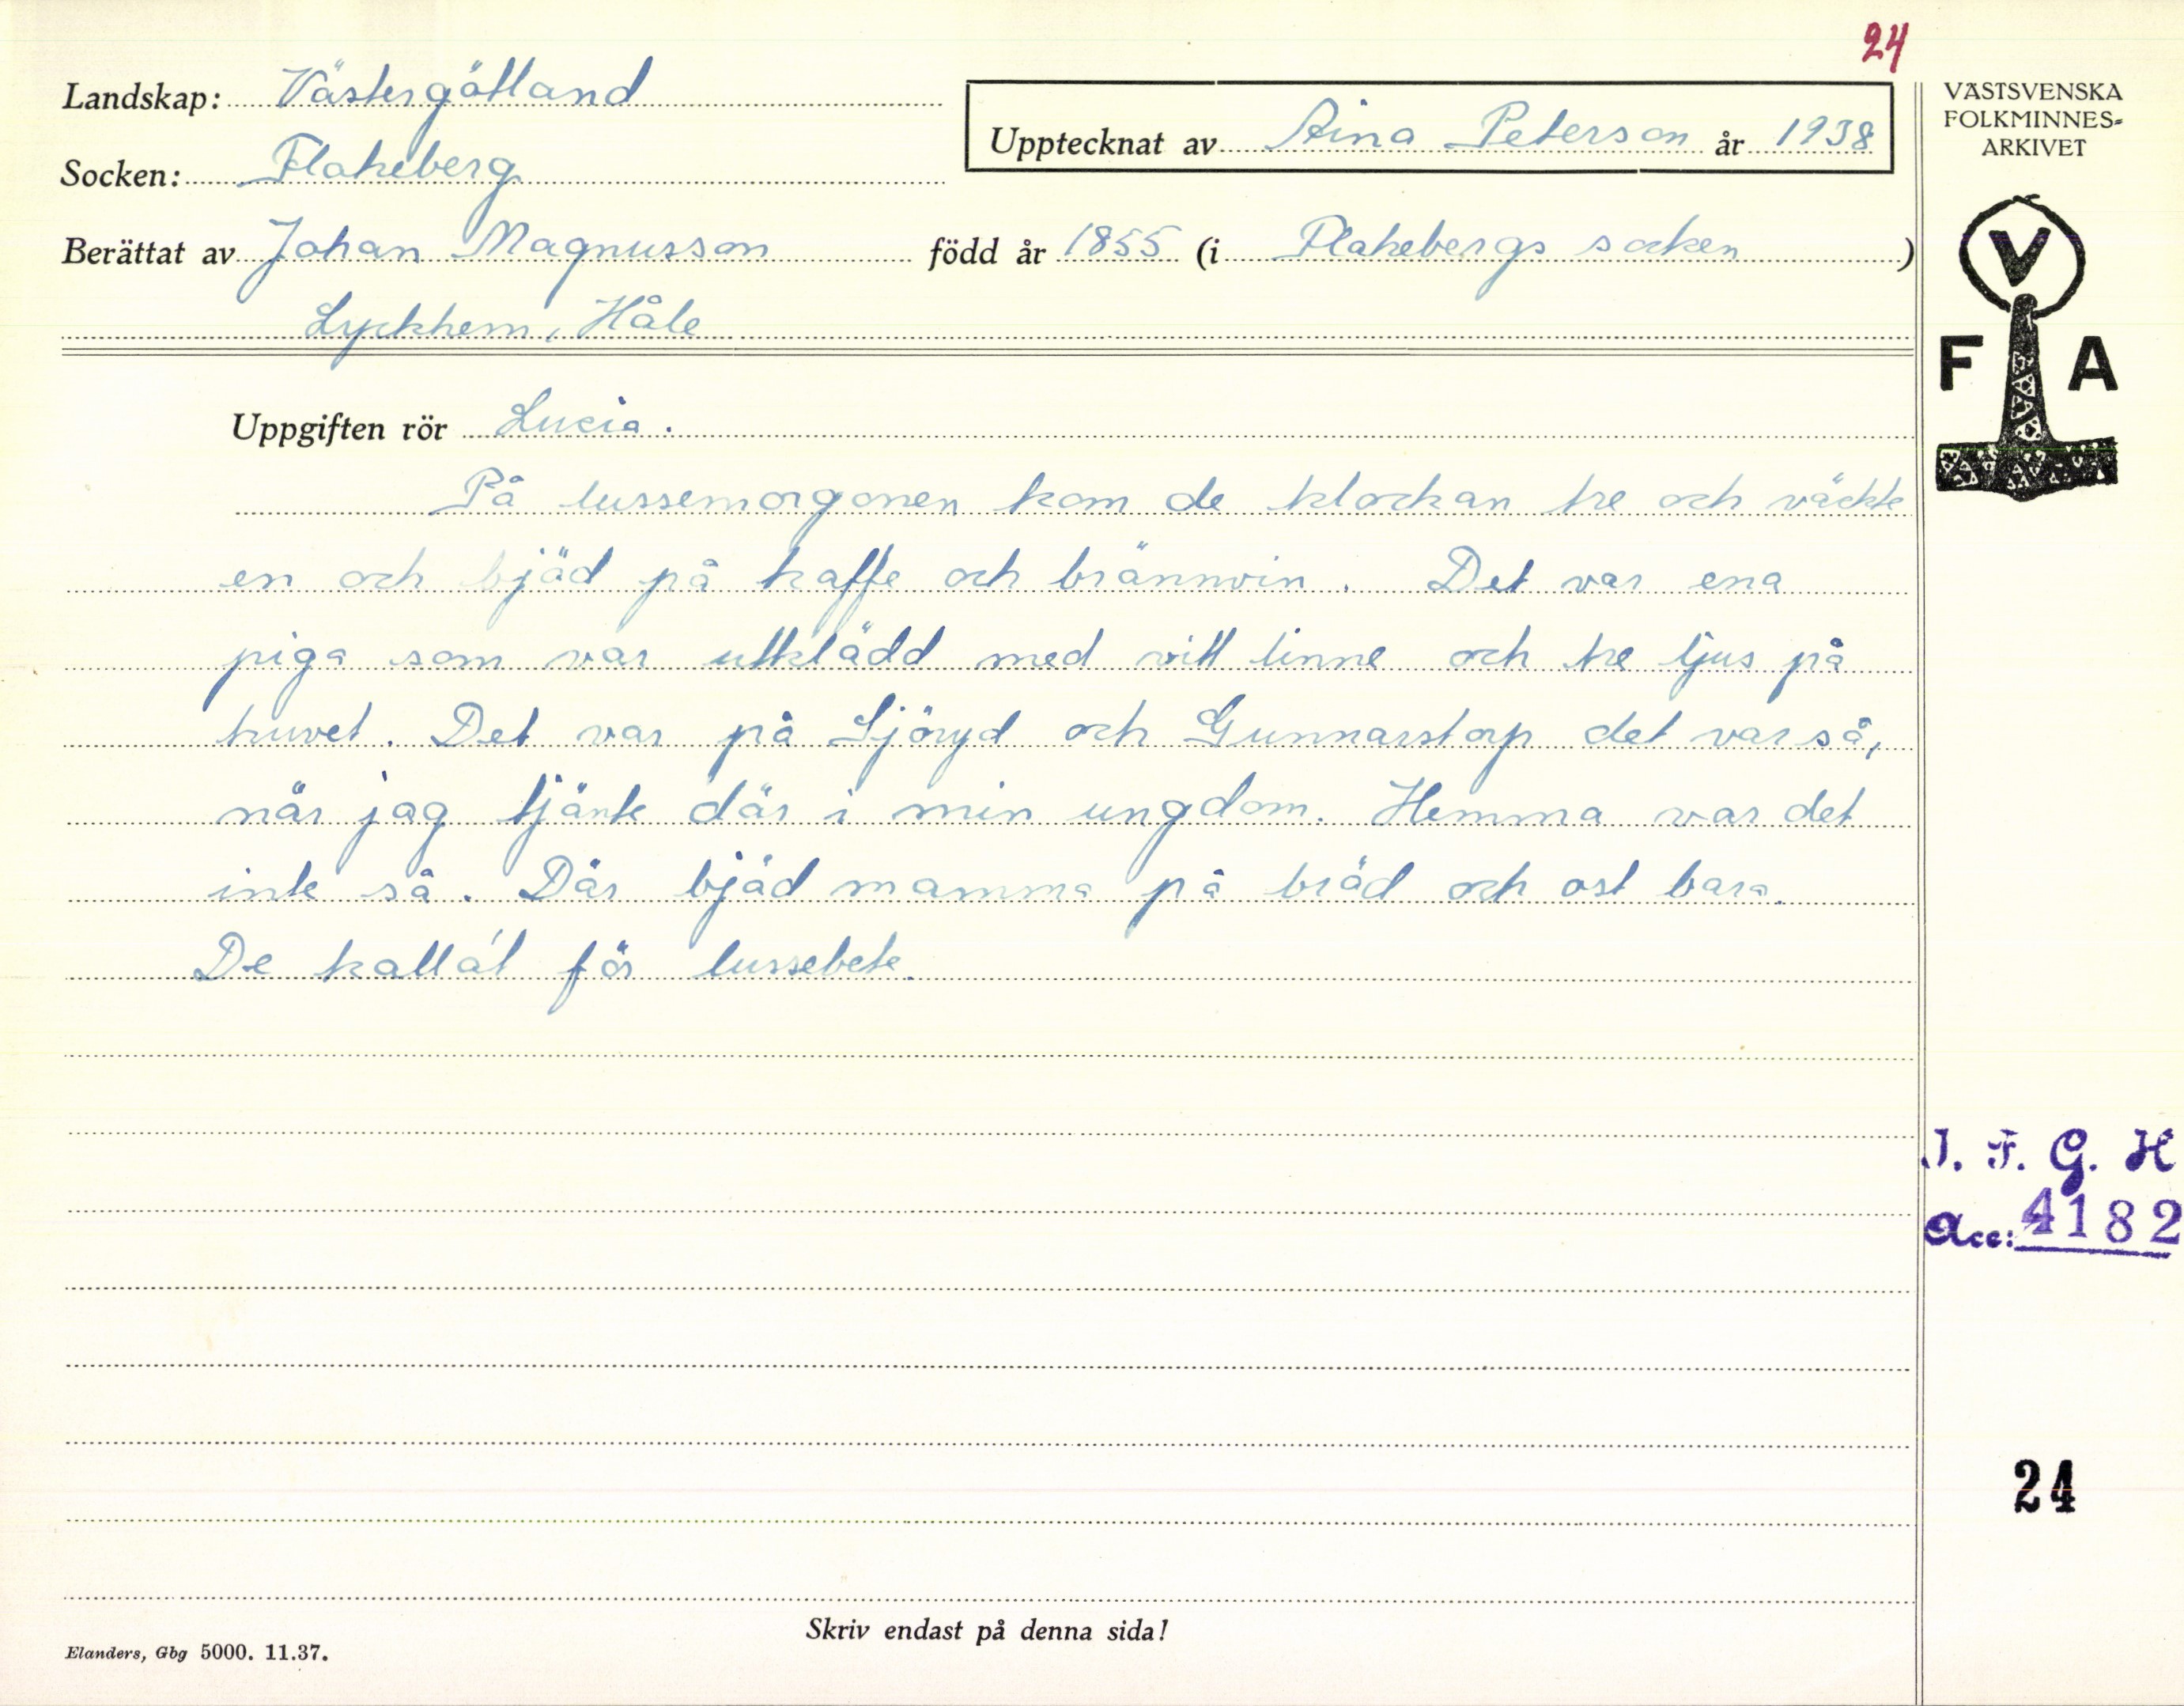 24
Landskap: Västergötland
Upptecknat av Aina Peterson år 1938
Socken: Flakeberg
Berättat av Johan Magnusson född år 1855 (i Flakebergs socken)
Lyckhem, Håle
Uppgiften rör Lucia.
På lussemorgonen kom de klockan tre och väckte
en och bjöd på kaffe och brännvin. Det var ena
piga som var utklädd med vitt linne och tre ljus på
huvet. Det var på Sjöryd och Gunnarstorp det var så,
när jag tjänte där i min ungdom. Hemma var det
inte så. Där bjöd mamma på bröd och ost bara.
De kalla't för lussebete.
VÄSTSVENSKA
FOLKMINNES-
ARKIVET
V
F A
I. F. G. H
Acc: 4182
24
Skriv endast på denna sida!
Elanders, Gbg 5000. 11.37.